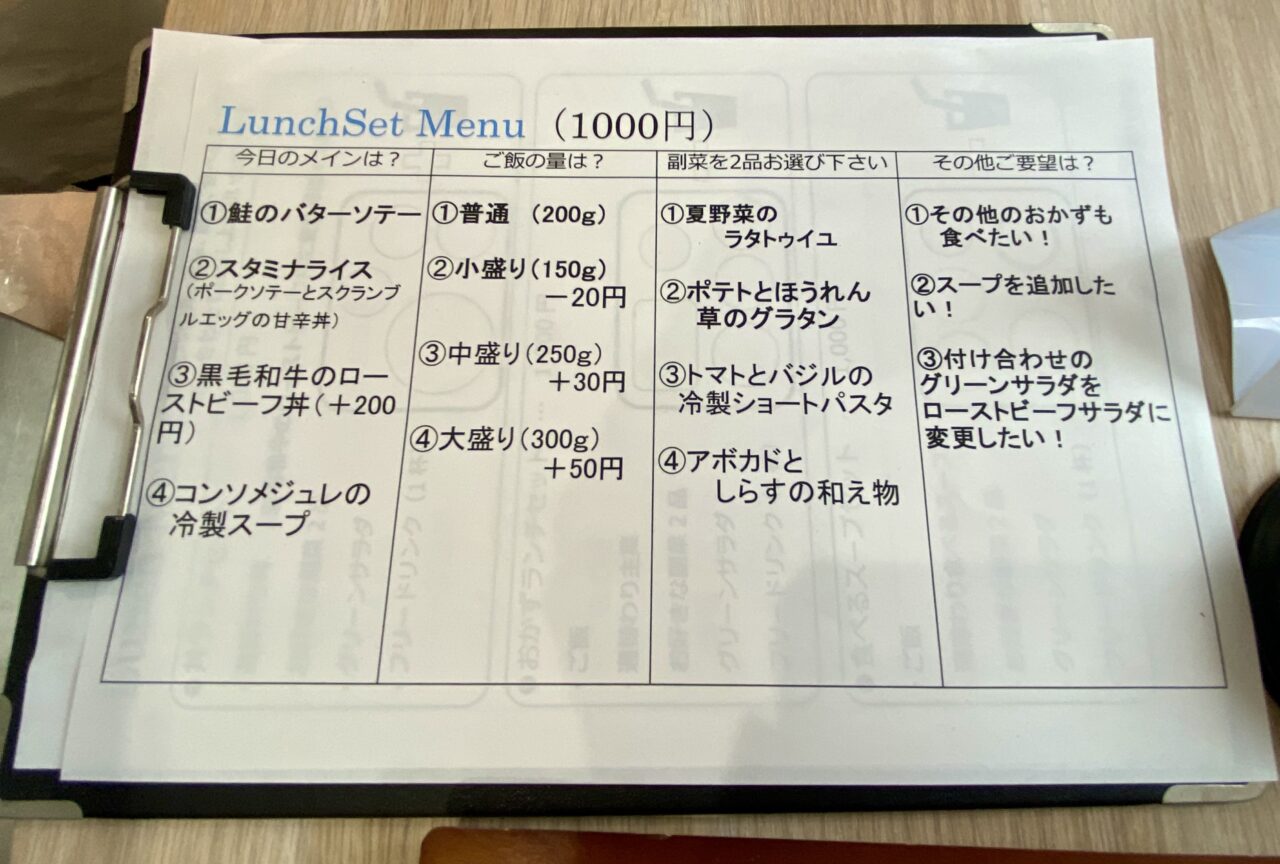 LunchSet Menu（1000円）
今日のメインは？
①鮭のバターソテー
②スタミナライス
（ポークソテーとスクランブ
ルエッグの甘辛丼）
③黒毛和牛のロー
ストビーフ丼（＋200
円）
④コンソメジュレの
冷製スープ
ご飯の量は？
①普通　（200g）
②小盛り（150g）
－20円
③中盛り（250g）
＋30円
④大盛り（300g）
＋50円
副菜を2品お選び下さい
①夏野菜の
ラタトゥイユ
②ポテトとほうれん
草のグラタン
③トマトとバジルの
冷製ショートパスタ
④アボカドと
しらすの和え物
その他ご要望は？
①その他のおかずも
食べたい！
②スープを追加した
い！
③付け合わせの
グリーンサラダを
ローストビーフサラダに
変更したい！